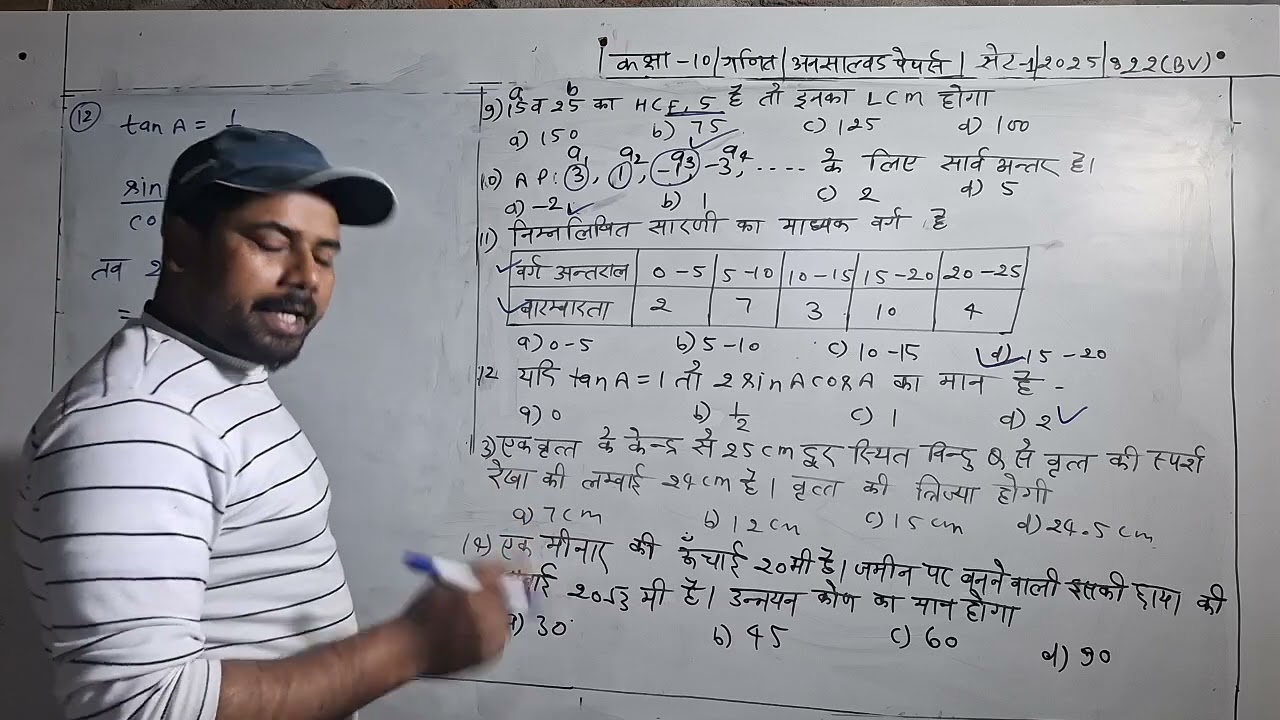 कक्षा -10/गणित/अनसाल्वड पेपर्स/ सेट-1/2025/822(BV)
12
tan A = 1
sin
co
तब 2
=
a b
9) 15 व 25 का HCF, 5 है तो इनका LCM होगा
a) 150 b) 75 c) 125 d) 100
a1 a2 a3 a4
10) AP: 3, 1, -1, -3, ..... के लिए सार्व अन्तर है।
a) -2 b) 1 c) 2 d) 5
11) निम्नलिखित सारणी का माध्यक वर्ग है
वर्ग अन्तराल 0-5 5-10 10-15 15-20 20-25
बारम्बारता 2 7 3 10 4
a) 0-5 b) 5-10 c) 10-15 d) 15-20
12. यदि tanA=1 तो 2 sinAcosA का मान है -
a) 0 b) 1/2 c) 1 d) 2
13) एक वृत्त के केन्द्र से 25 cm दूर स्थित बिन्दु Q से वृत्त की स्पर्श
रेखा की लम्बाई 24 cm है। वृत्त की त्रिज्या होगी
a) 7 cm b) 12 cm c) 15 cm d) 24.5 cm
एक मीनार की ऊँचाई 20 मी है। जमीन पर बनने वाली इसकी छाया की
20√3 मी है। उन्नयन कोण का मान होगा
a) 30 b) 45 c) 60 d) 90